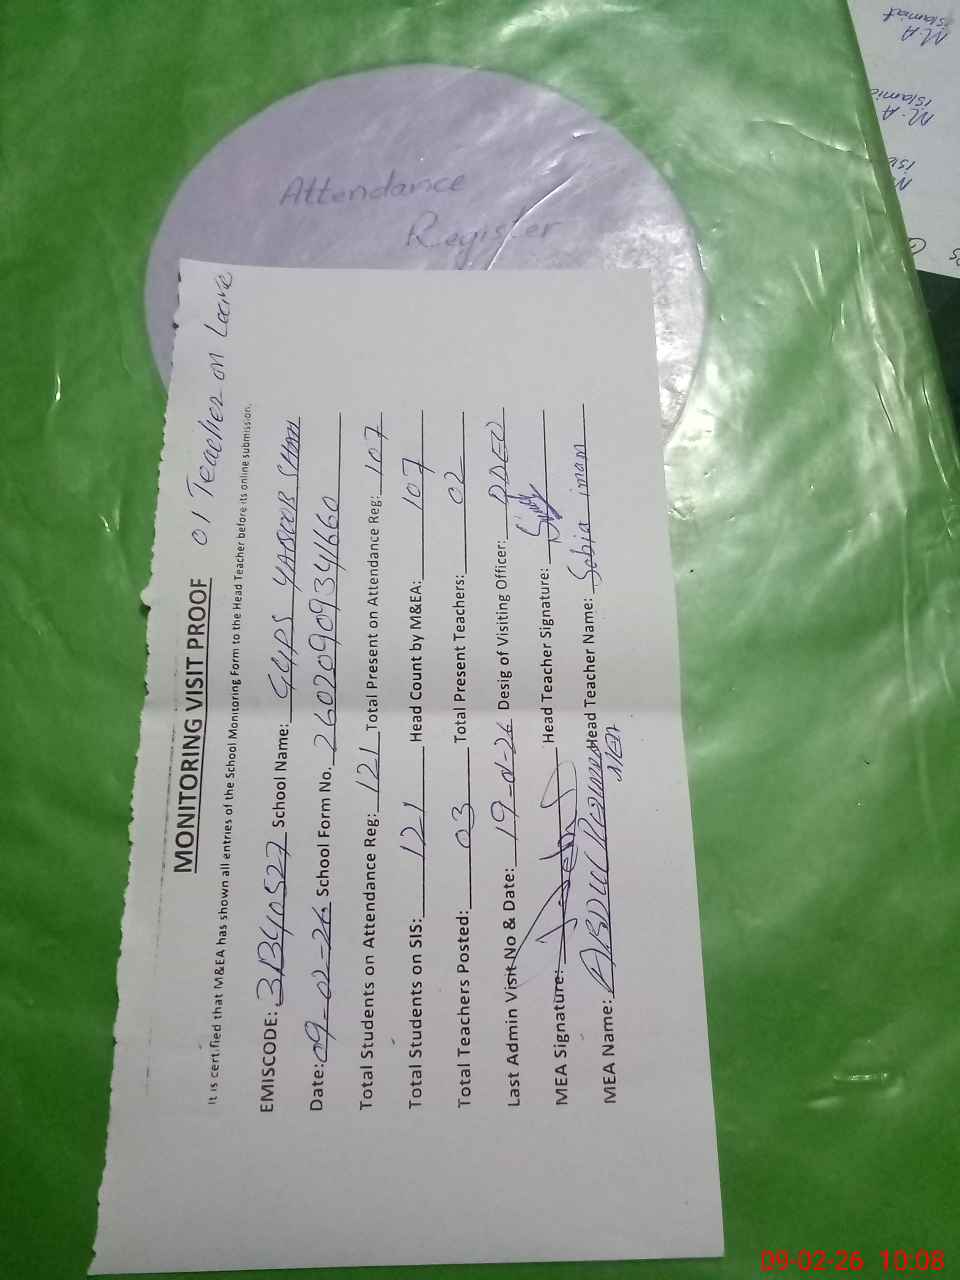 Attendance
Register
01 Teacher on Leave
MONITORING VISIT PROOF
It is certified that M&EA has shown all entries of the School Monitoring Form to the Head Teacher before its online submission.
EMISCODE: 3B40527 School Name: GGPS YAQOOB SHAH
Date: 09-02-26 School Form No. 26020909341660
Total Students on Attendance Reg: 121 Total Present on Attendance Reg: 107
Total Students on SIS: 121 Head Count by M&EA: 107
Total Teachers Posted: 03 Total Present Teachers: 02
Last Admin Visit No & Date: 19-01-26 Desig of Visiting Officer: DDEO
MEA Signature: Head Teacher Signature:
MEA Name: ABDUL Head Teacher Name: Sobia imam
MEA
M.A
islamiat
M.A
islamic
09-02-26 10:08